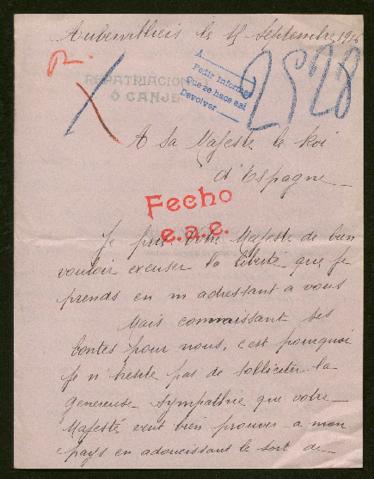 Aubervilliers le 15 Septembre 19
R.
REPATRIACION
Ó CANJE
A
Pedir Informe
Que se hace así
Devolver
2828
A Sa Majesté le Roi
d'Espagne
Fecho
e.a.c.
Je prie Votre Majesté de bien
vouloir excuser la liberté que je
prends en m adressant a vous
Mais connaissant ses
bontes pour nous, c'est pourquoi
Je n'hesite pas de solliciter la
genereuse sympathie que votre
Majesté veut bien prouver a mon
pays en adoucissant le sort de